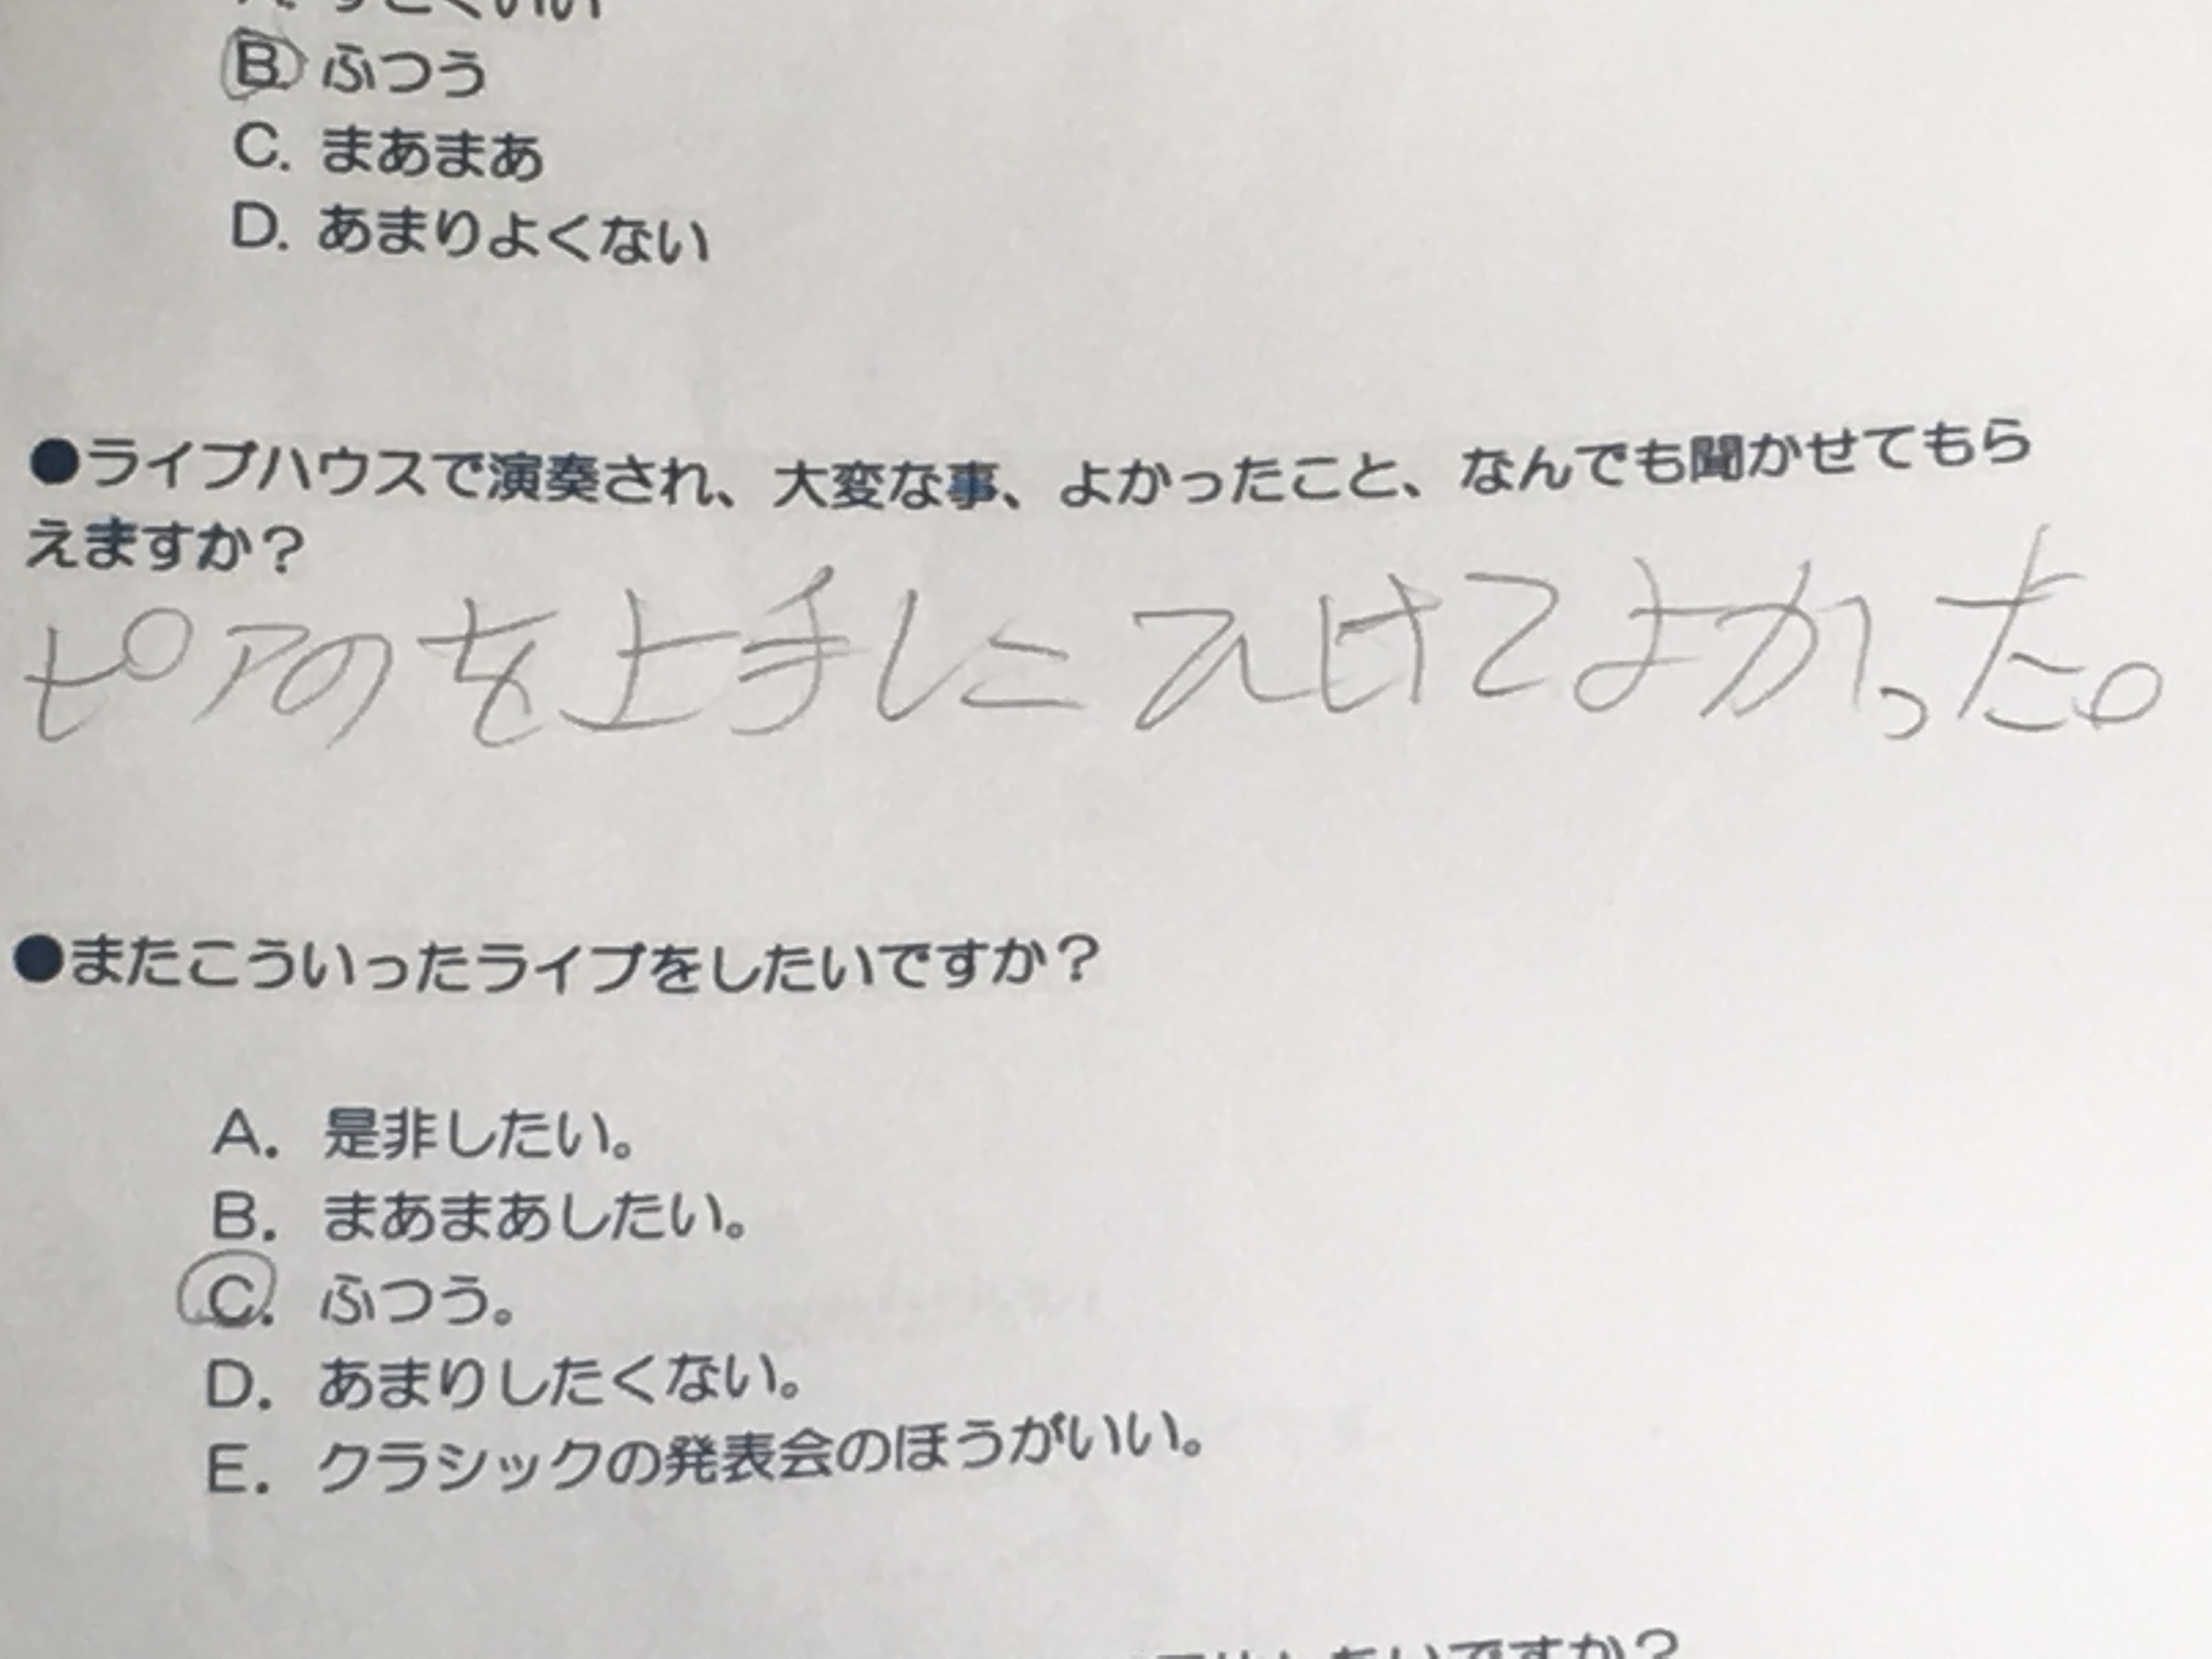 A. すごくいい
B. ふつう
C. まあまあ
D. あまりよくない
●ライブハウスで演奏され、大変な事、よかったこと、なんでも聞かせてもら
えますか？
ピアのを上手しにひけてよかった。
●またこういったライブをしたいですか？
A. 是非したい。
B. まあまあしたい。
C. ふつう。
D. あまりしたくない。
E. クラシックの発表会のほうがいい。
ですか？